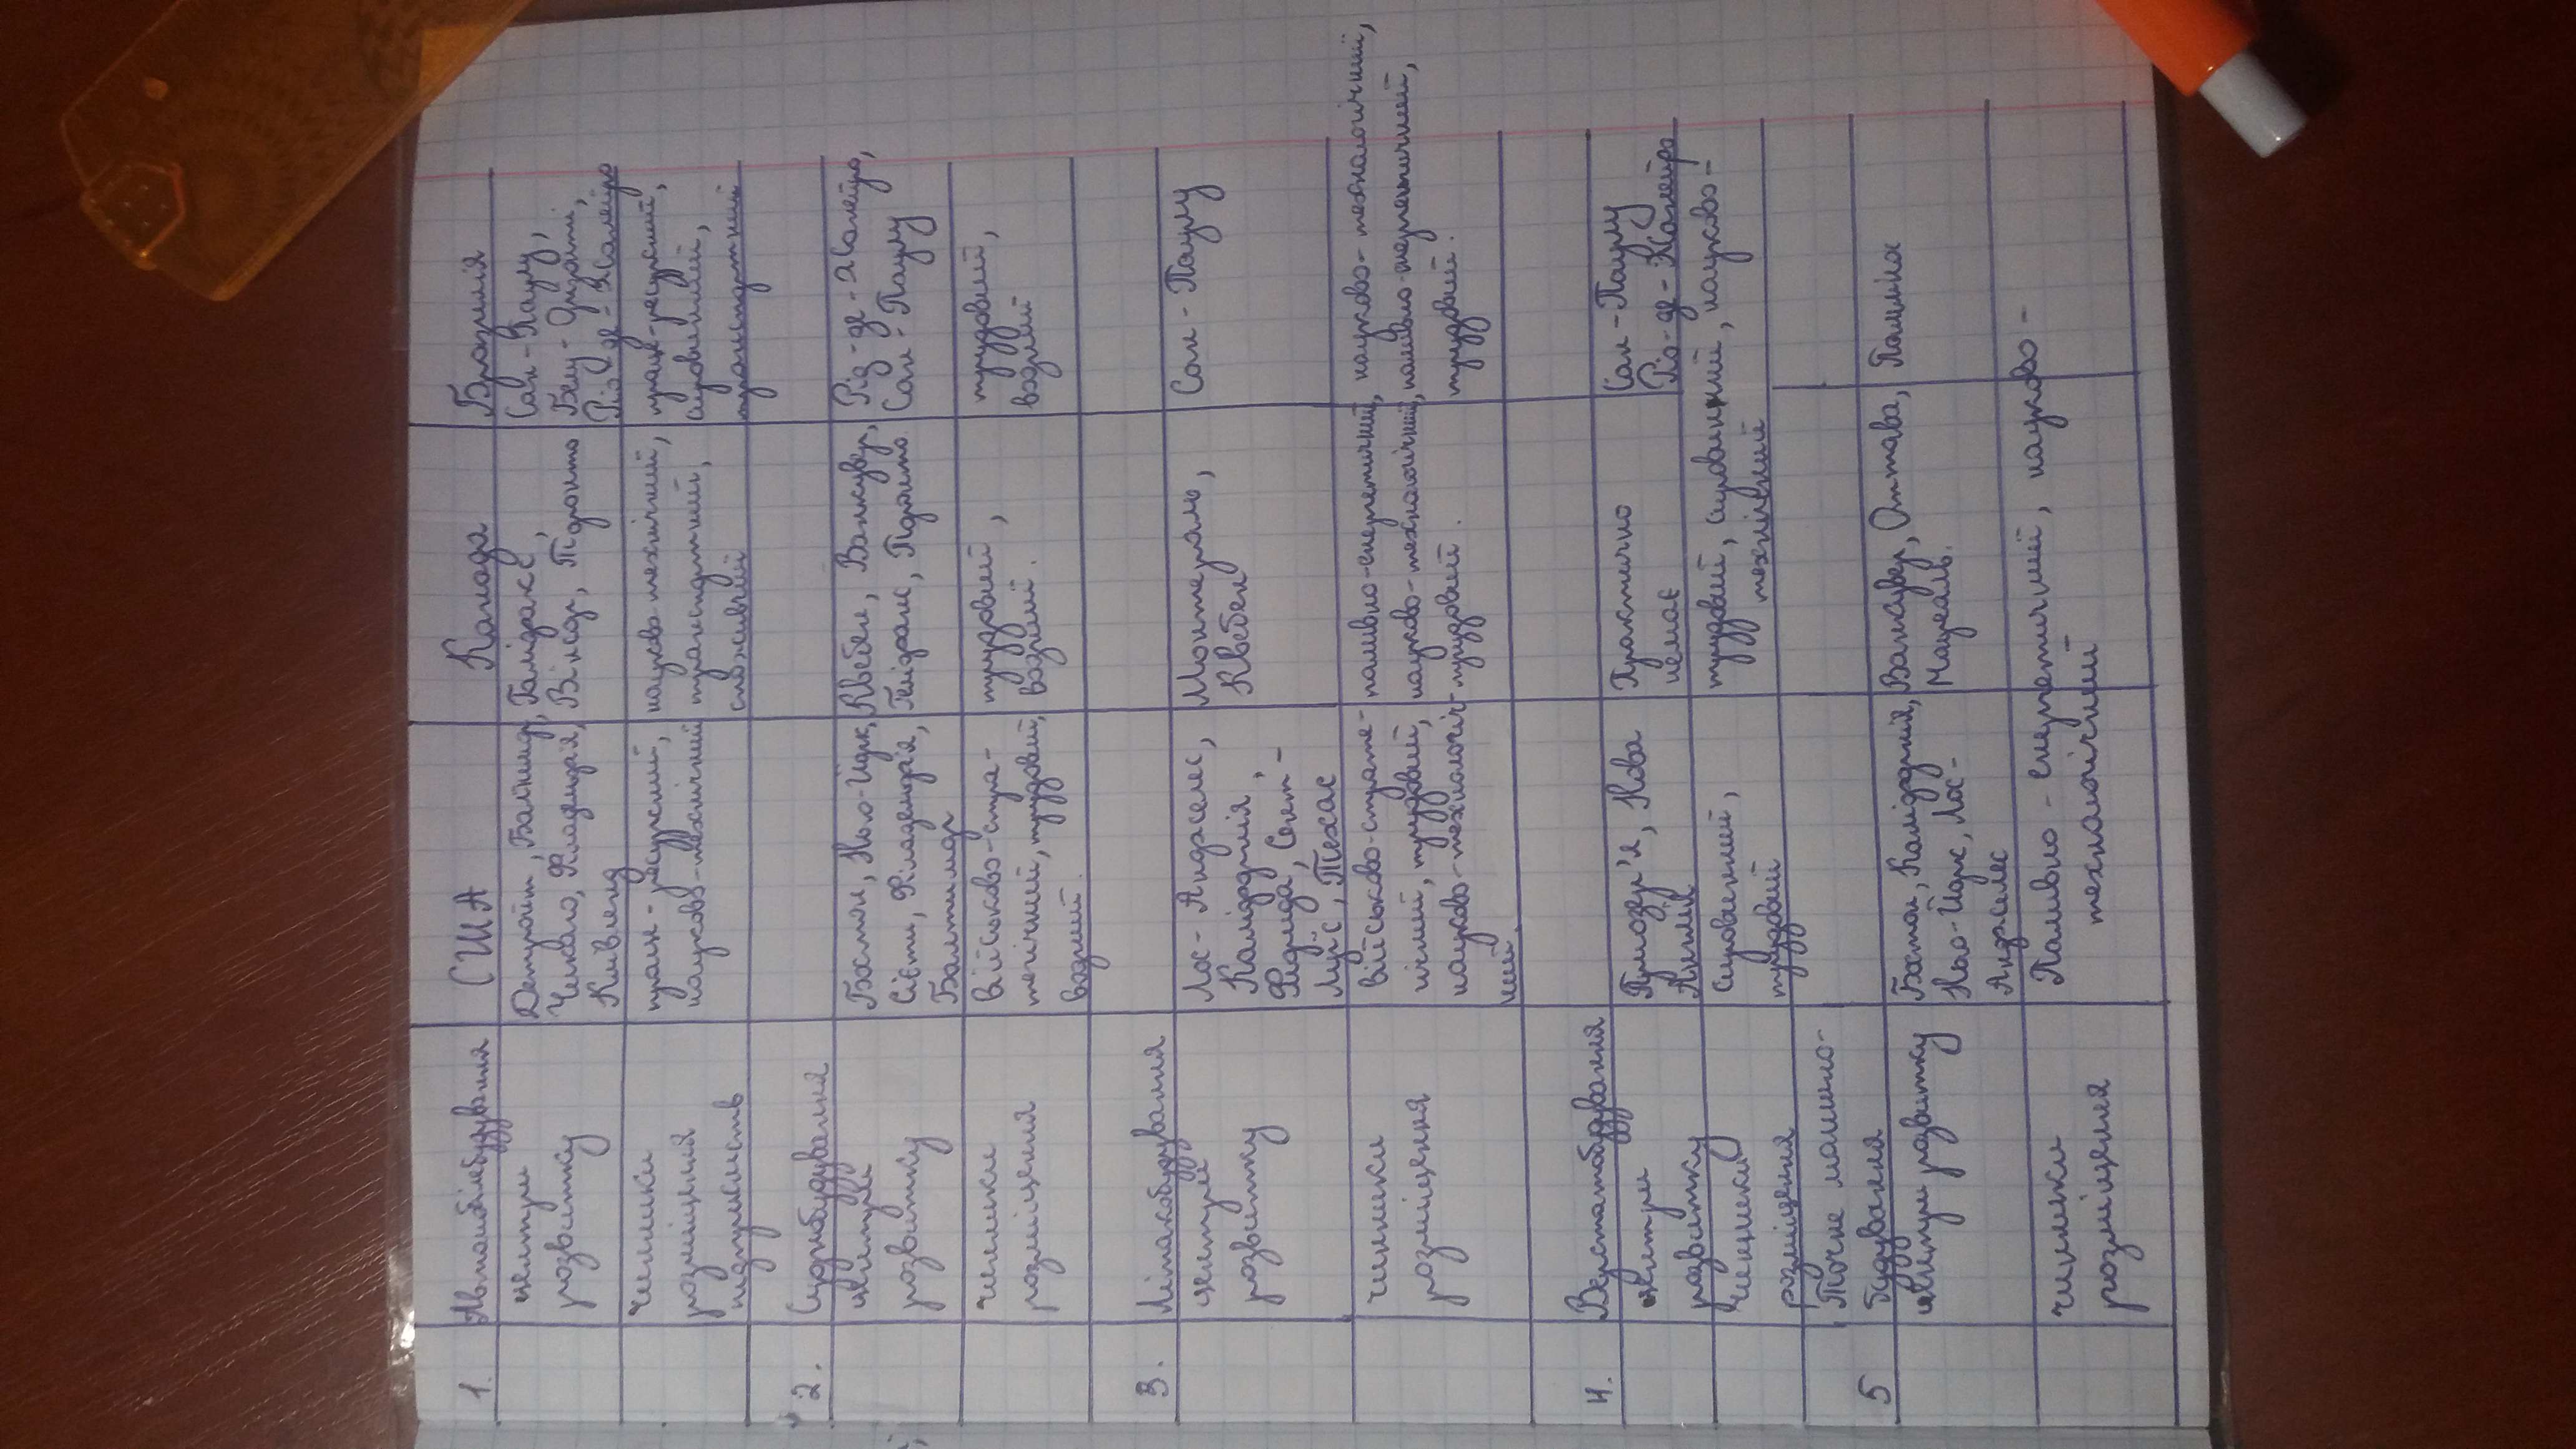 1. Автомобілебудування США Канада Бразилія
центри
розвитку
Детройт, Балтимор,
Чикаго, Філадельфія,
Клівленд
Галіфакс,
Віндзор, Торонто
Сан-Паулу,
Рід-де-Жанейро
чинники
розміщення
підприємств
транс-ресурсний,
науково-технічний
науково-технічний,
транспортний,
споживчий
транс-ресурсний,
сировинний,
транспортний
2. Суднобудування
центри
розвитку
Бостон, Нью-Йорк,
Сієтл, Філадельфія,
Балтимор
Квебек, Ванкувер,
Галіфакс, Торонто
Ріо-де-Жанейро,
Сан-Паулу
чинники
розміщення
військово-страте-
гічний, трудовий,
водний.
трудовий,
водний.
трудовий,
водний
3. Літакобудування
центри
розвитку
Лос-Анджелес,
Каліфорнія,
Флорида, Сент-
Луїс, Техас
Монтераль,
Квебек
Сан-Паулу
чинники
розміщення
військово-страте-
гічний, трудовий,
науково-технологіч-
ний.
паливно-енергетичний,
науково-технологічний,
трудовий.
науково-технологічний,
паливно-енергетичний,
трудовий.
4. Верстатобудування
центри
розвитку
Нова
Англія
Практично
немає
Сан-Паулу
Ріо-де-Жанейро
чинники
розміщення
сировинний,
трудовий
трудовий, сировинний, науково-
технічний
5 Точне машино-
будування
центри розвитку
Бостон, Каліфорнія,
Нью-Йорк, Лос-
Анджелес
Ванкувер, Оттава,
чинники
розміщення
Паливно-енергетичний, науково-
технологічний